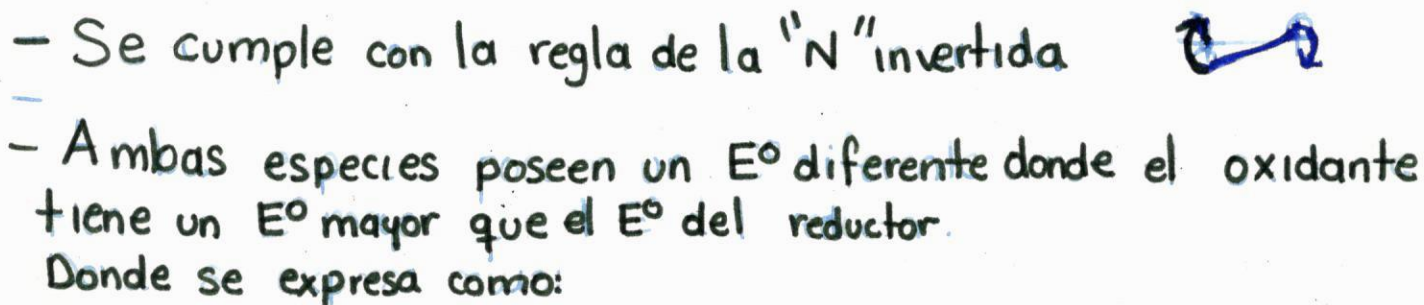 - Se cumple con la regla de la "N" invertida
- Ambas especies poseen un E° diferente donde el oxidante
tiene un E° mayor que el E° del reductor.
Donde se expresa como: